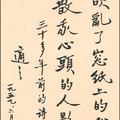 吹亂了窓紙上的松
散我心頭的人影
三十多年前的詩
適之
一九五九、六月